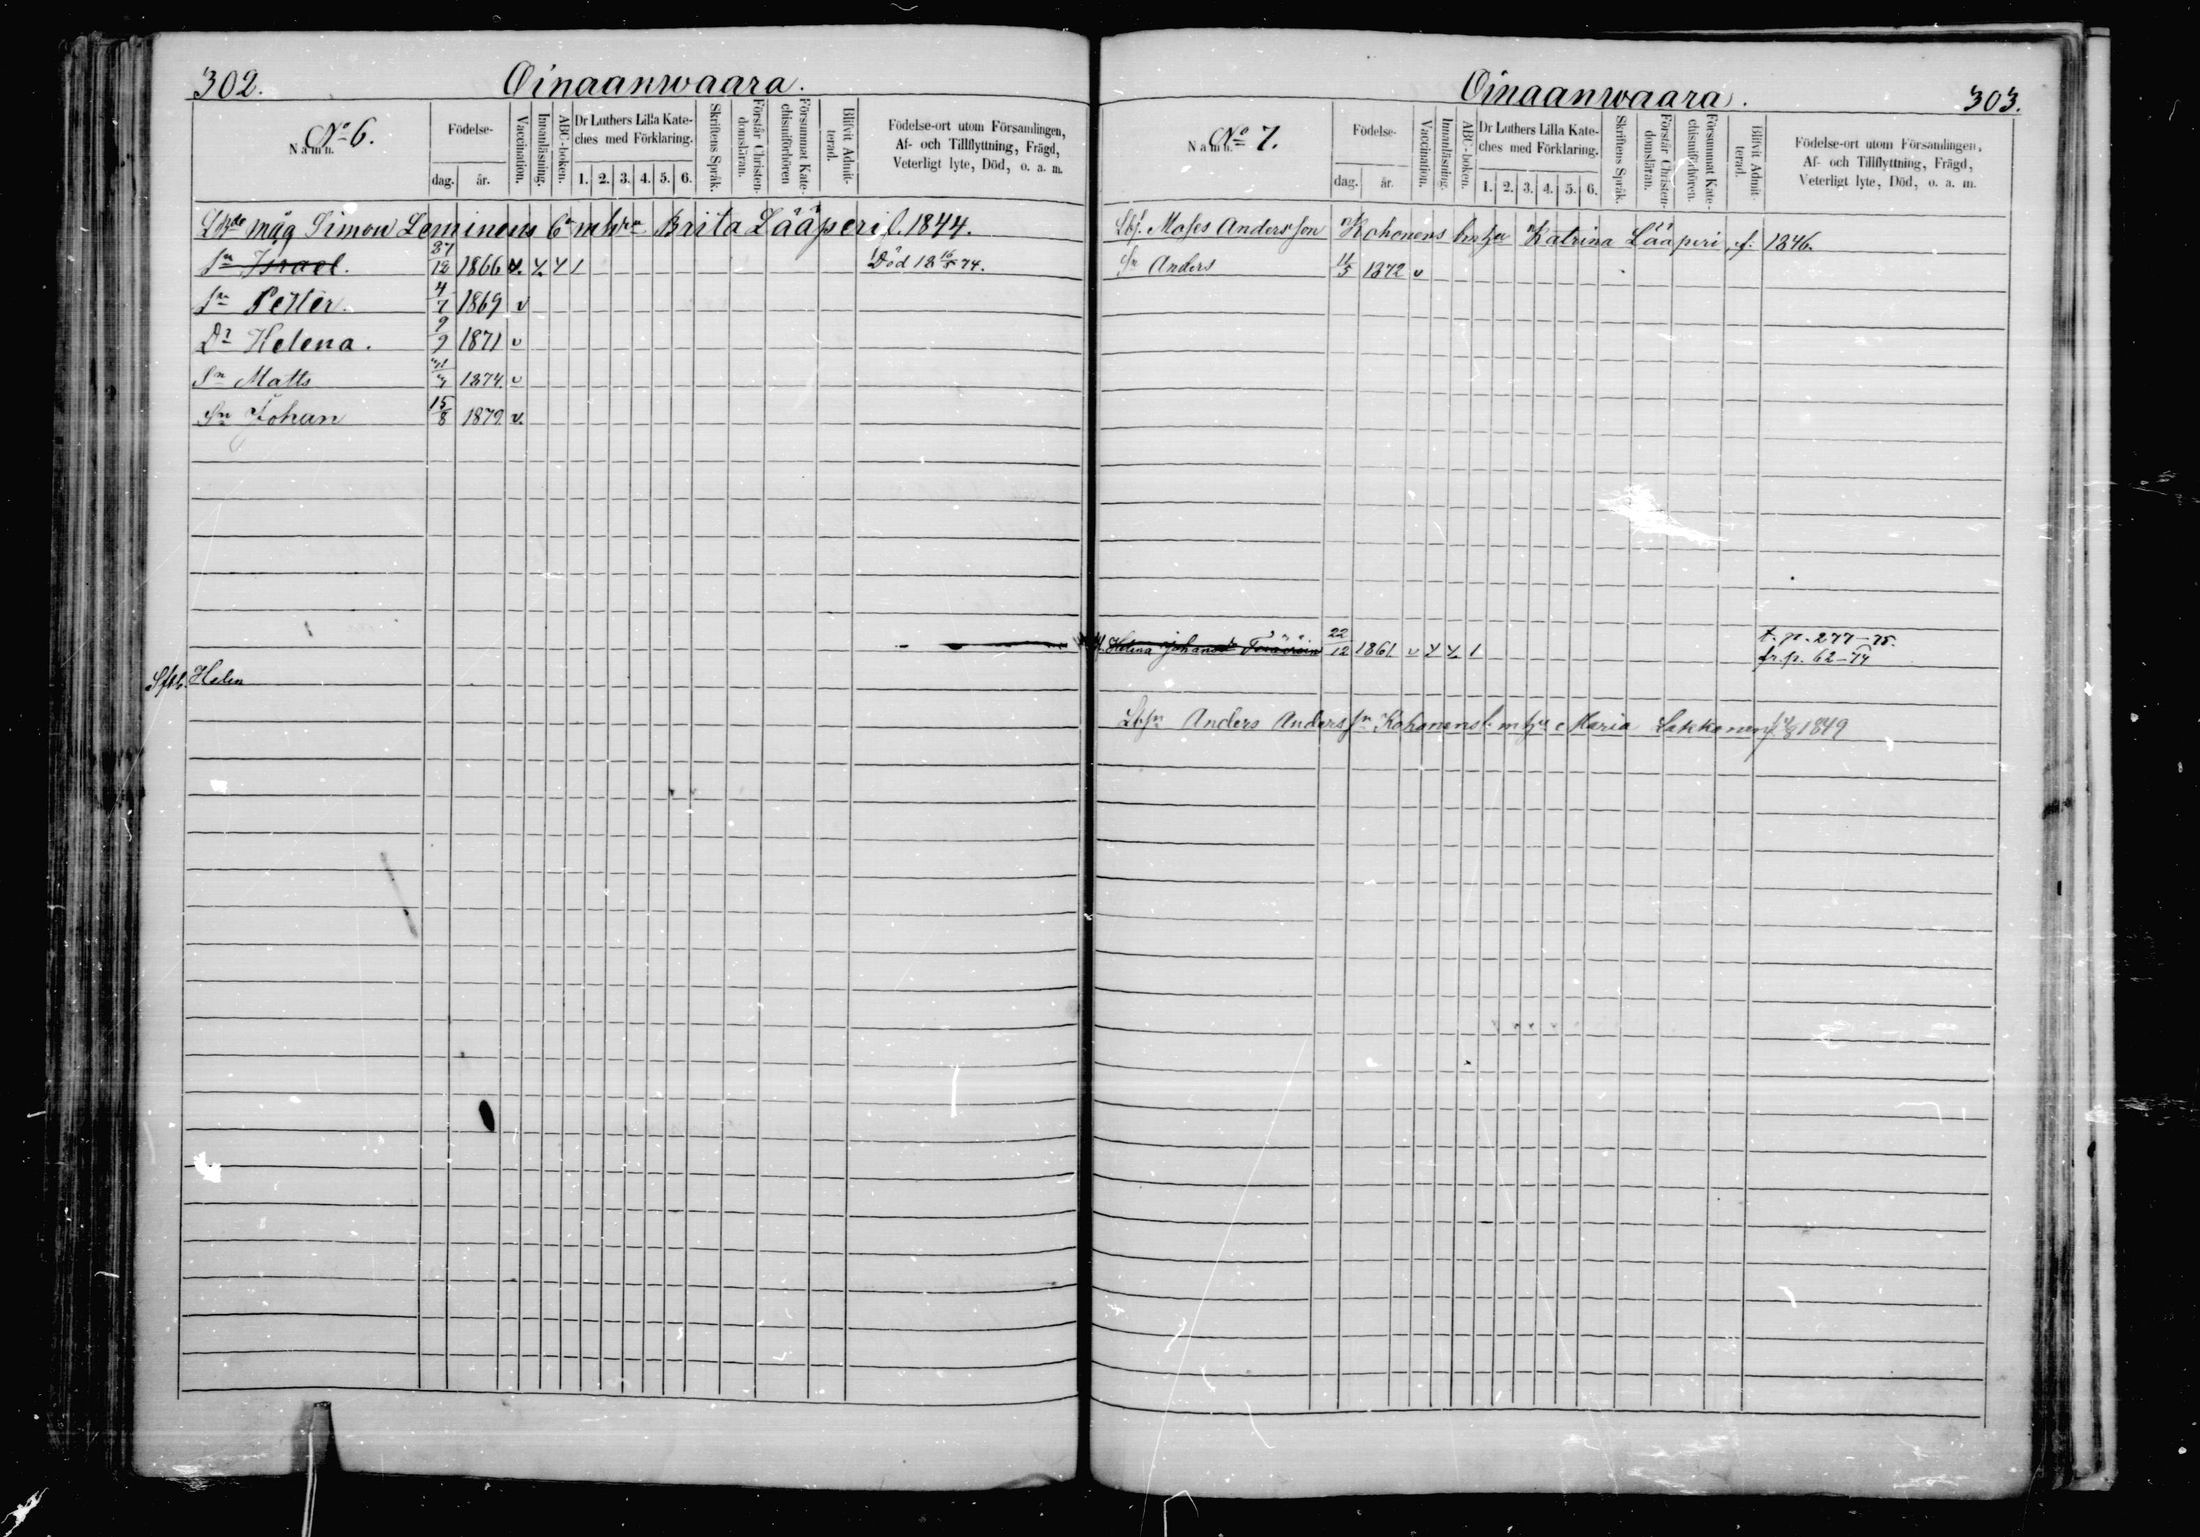 302.
Oinaanwaara.
No 6.
Namn.
Födelse-
dag.
år.
Vaccination.
Innanläsning.
ABC-boken.
Dr Luthers Lilla Kate-
ches med Förklaring.
1. 2. 3. 4. 5. 6.
Skriftens Språk.
Förstår Christen-
domsläran.
Försummat Kate-
chismiförhören
Blifvit Admit-
terad.
Födelse-ort utom Församlingen,
Af- och Tillflyttning, Frägd,
Veterligt lyte, Död, o. a. m.
måg Simon Leminens Brita Lääperi f. 1844.
Sn Israel. 27/12 1866 v. Död 18 74.
Sn Petter. 4/7 1869 v
Dr Helena. 9/9 1871 v
Sn Matts 1874. v
Sn Johan 15/8 1879. v.
Helen
Oinaanwaara.
303.
No 7.
Namn.
Födelse-
dag.
år.
Vaccination.
Innanläsning.
ABC-boken.
Dr Luthers Lilla Kate-
ches med Förklaring.
1. 2. 3. 4. 5. 6.
Skriftens Språk.
Förstår Christen-
domsläran.
Försummat Kate-
chismiförhören.
Blifvit Admit-
terad.
Födelse-ort utom Församlingen,
Af- och Tillflyttning, Frägd,
Veterligt lyte, Död, o. a. m.
Moses Andersson Kohonens Katrina Lääperi, f. 1846.
Sn Anders 11/5 1872 v
Helena 22/12 1861 v 1 t. p. 277-75.
fr. p. 62-74
Anders Anderssn Kohonens Maria Lakkonen 1849